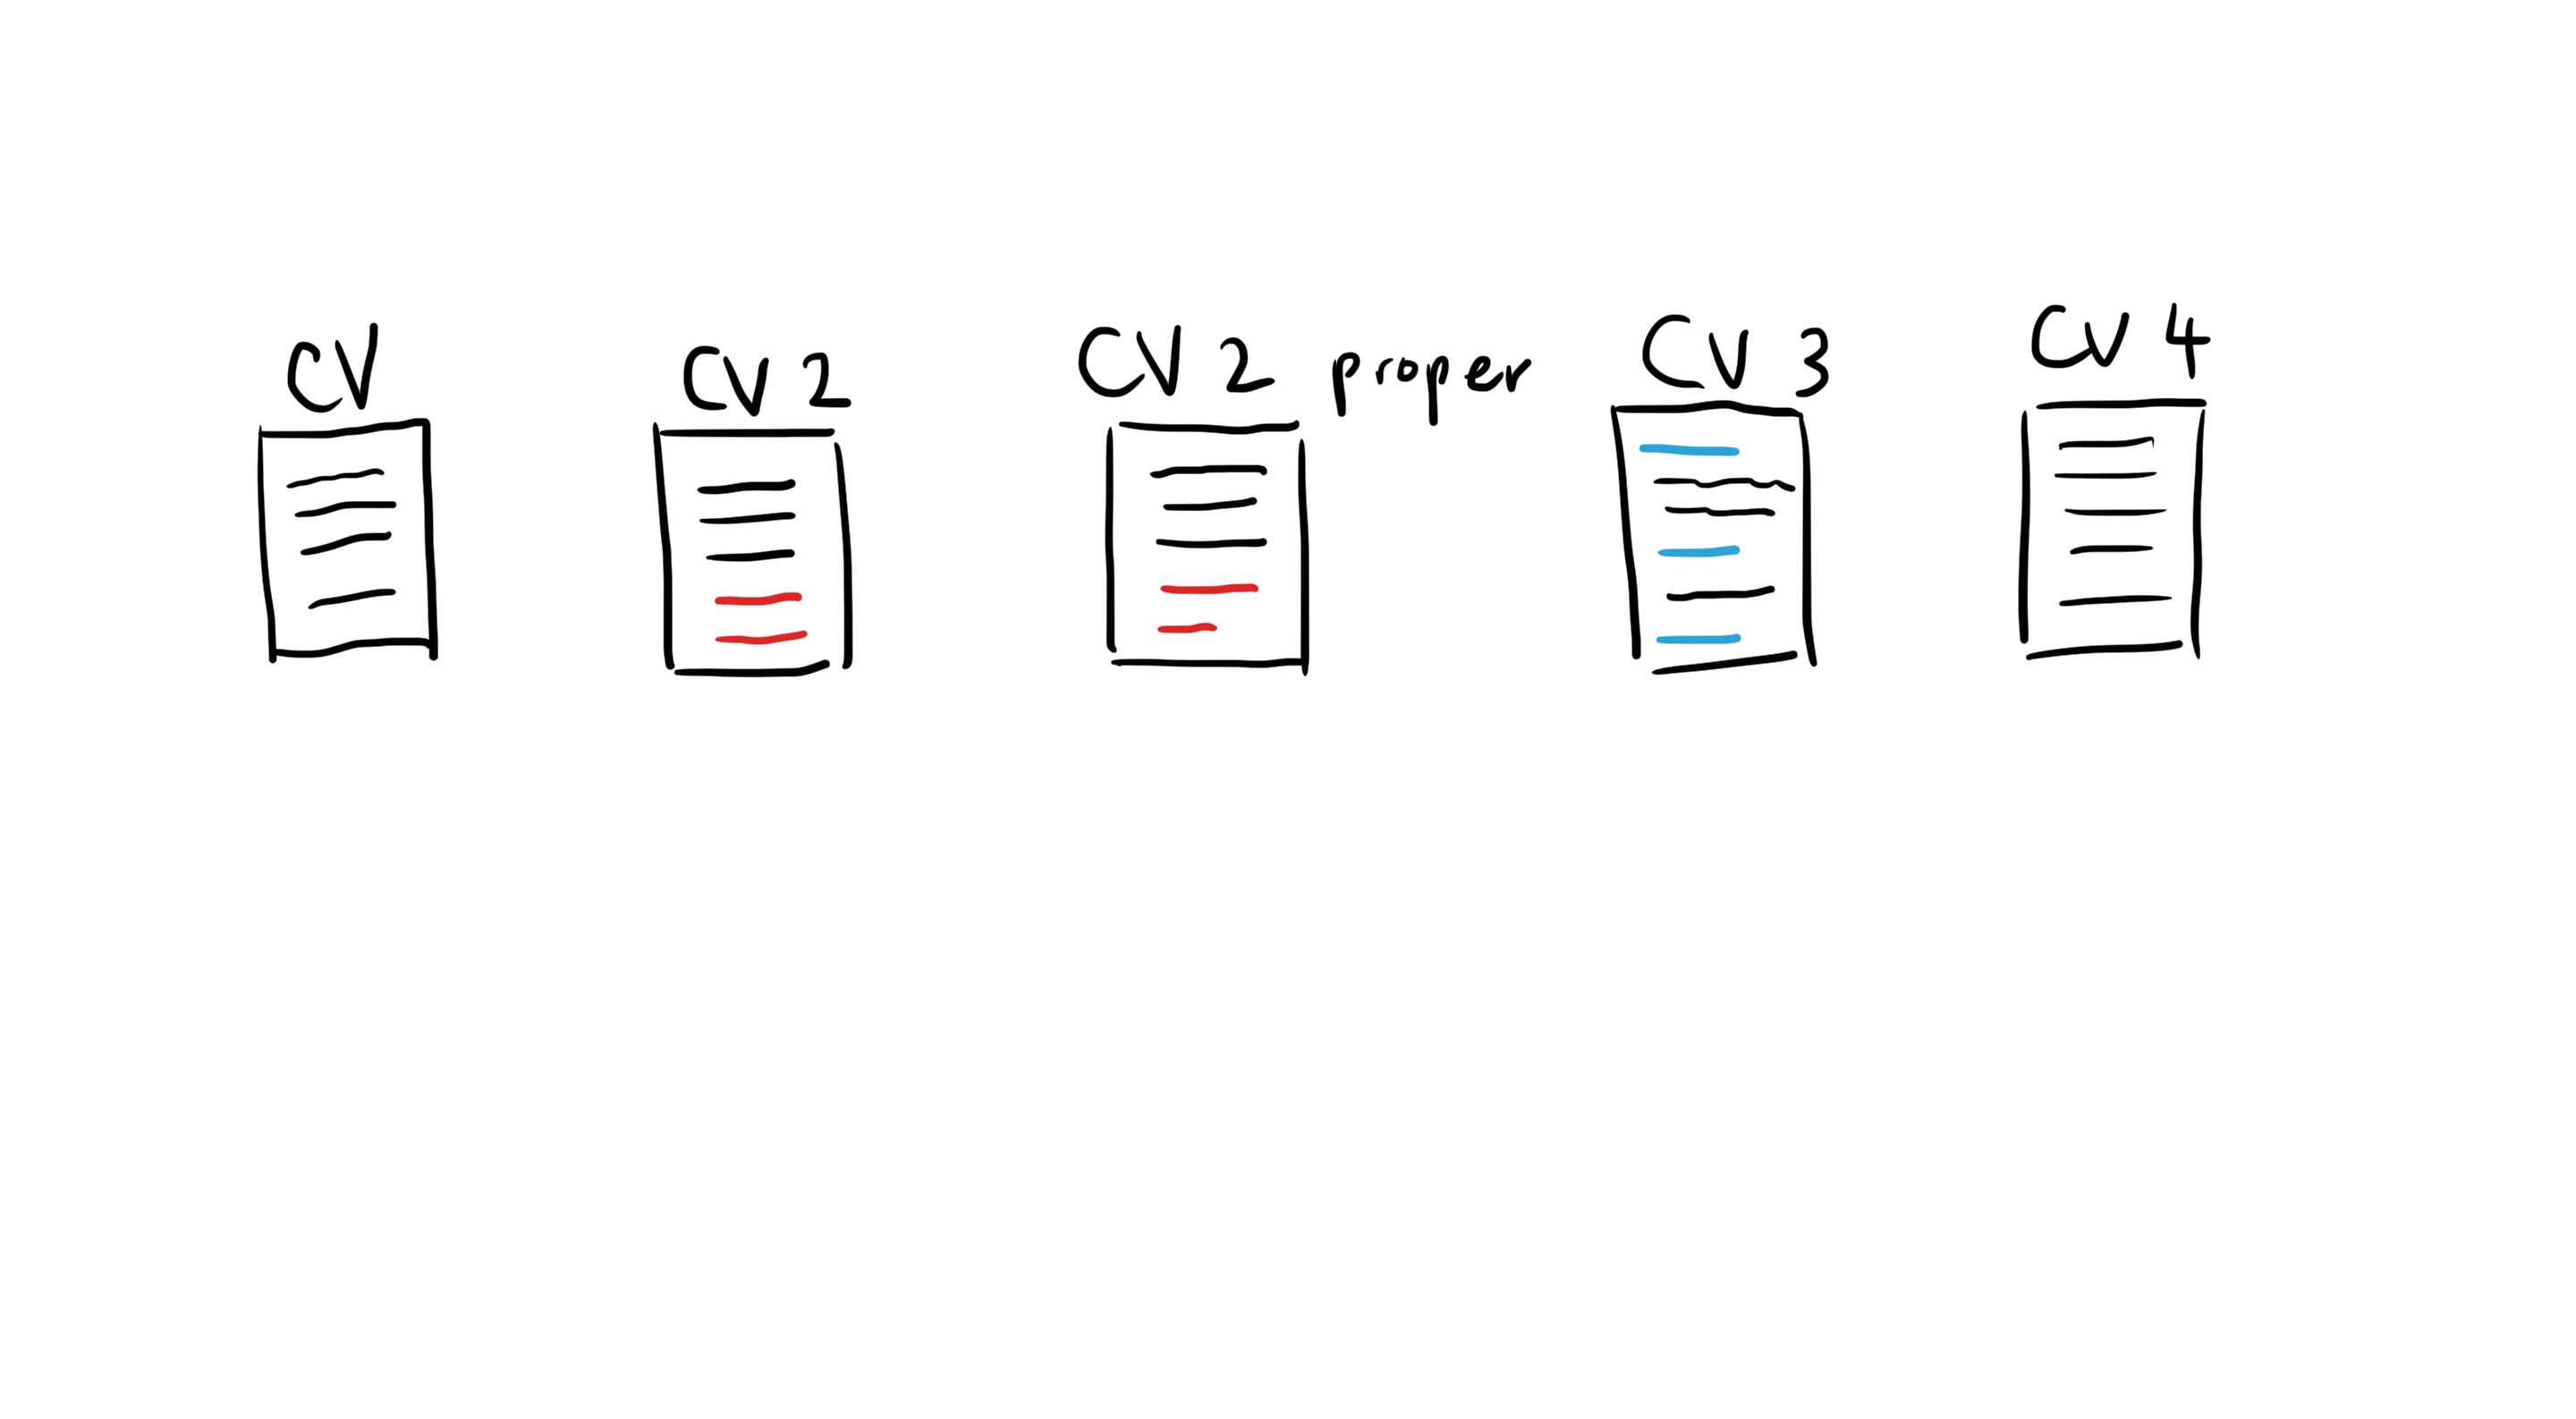 CV
CV 2
CV 2 proper
CV 3
CV 4